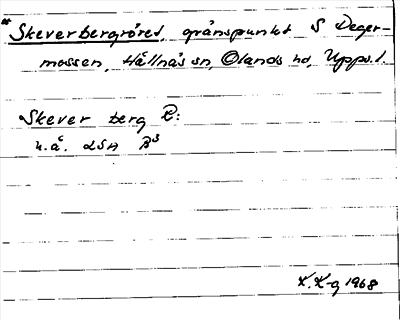 *Skeverbergröret, gränspunkt S Deger-
mossen, Hållnäs sn, Olands hd, Upps. l.
Skever berg R:
u.å. LSA B³
K. K-g 1968